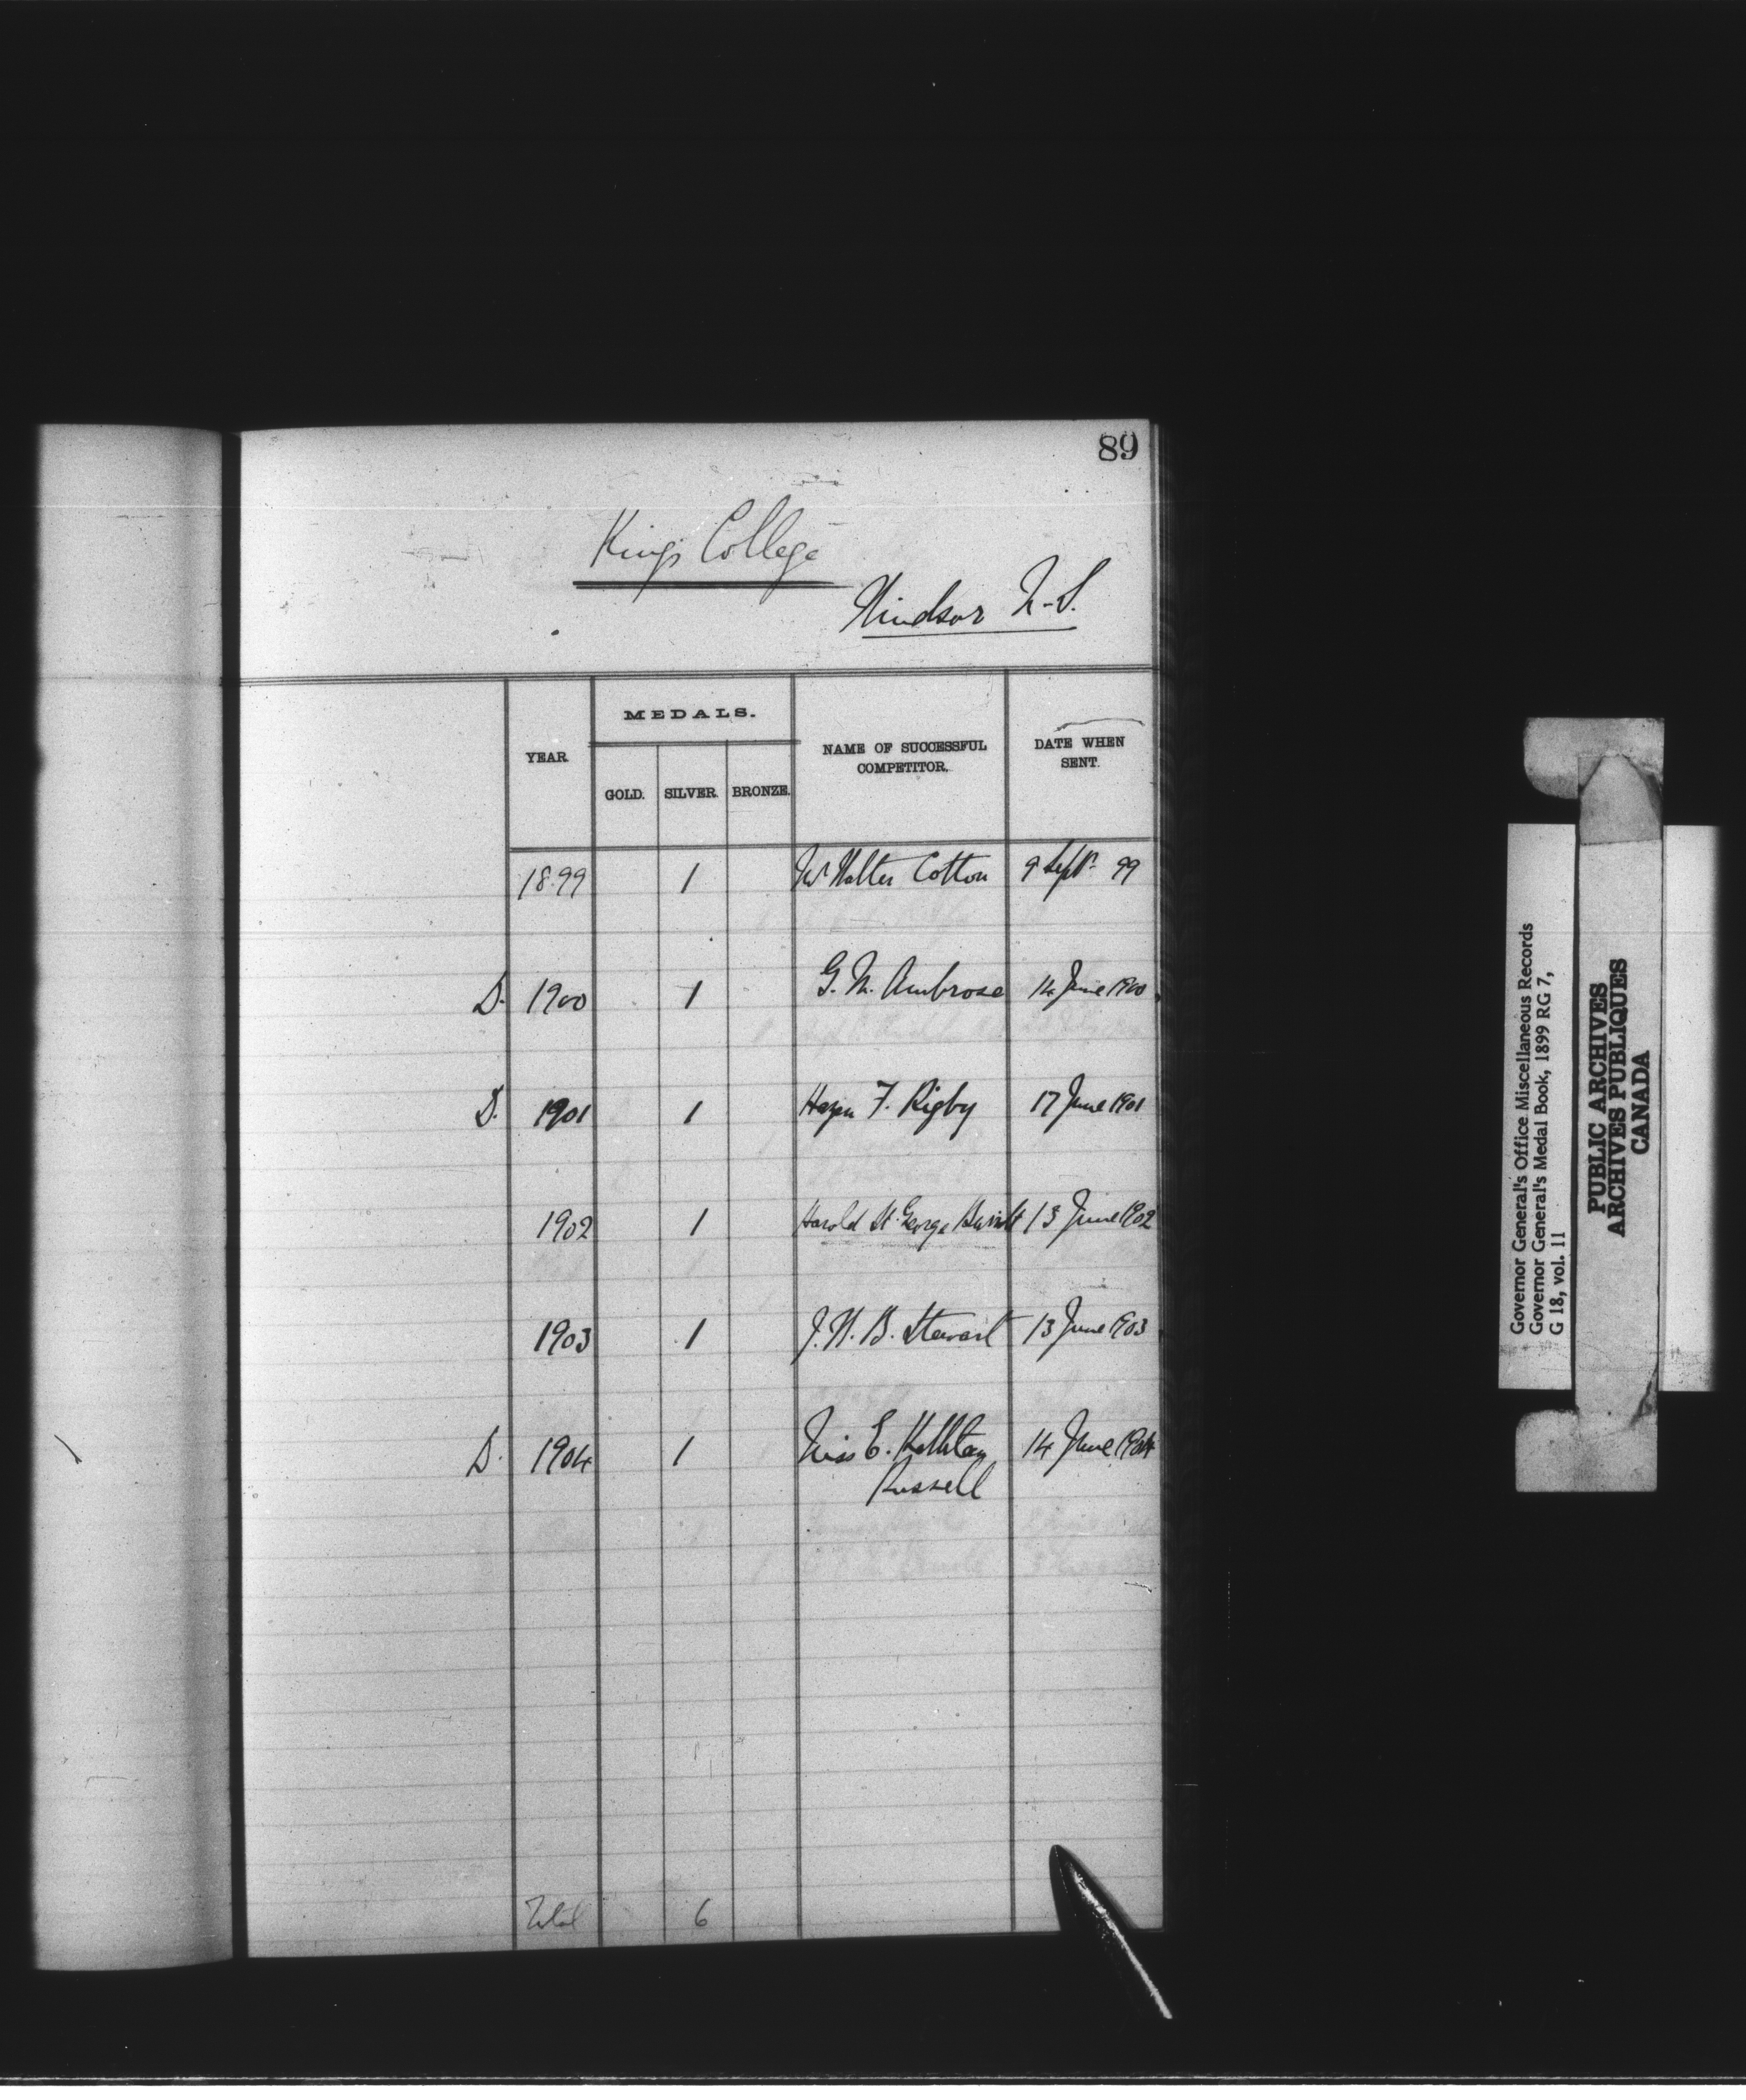 89
Kings College
Windsor N.S.
YEAR. MEDALS. NAME OF SUCCESSFUL COMPETITOR. DATE WHEN SENT.
GOLD. SILVER. BRONZE.
1899 1 Walter Cotton 9 Sept. 99
D. 1900 1 G. M. Ambrose 14 June 1900
D. 1901 1 F. Rigby 17 June 1901
1902 1 Harold St. George 13 June 1902
1903 1 J. H. B. Stewart 13 June 1903
D. 1904 1 Miss E. 14 June 1904
Russell
Total 6
Governor General's Office Miscellaneous Records
Governor General's Medal Book, 1899 RG 7,
G 18, vol. 11
PUBLIC ARCHIVES
ARCHIVES PUBLIQUES
CANADA